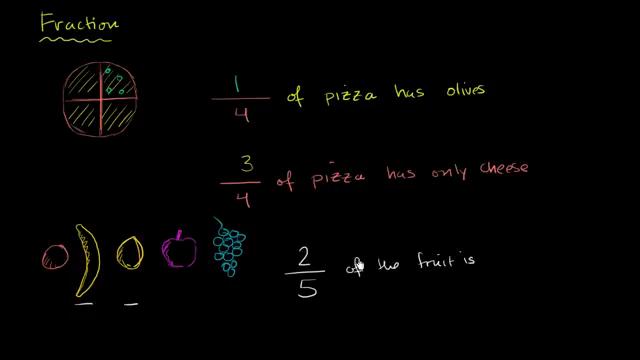 Fraction
1/4 of pizza has olives
3/4 of pizza has only cheese
2/5 of the fruit is